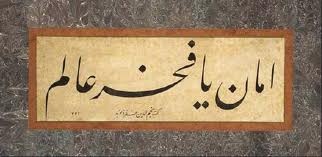 امان يا فخر عالم